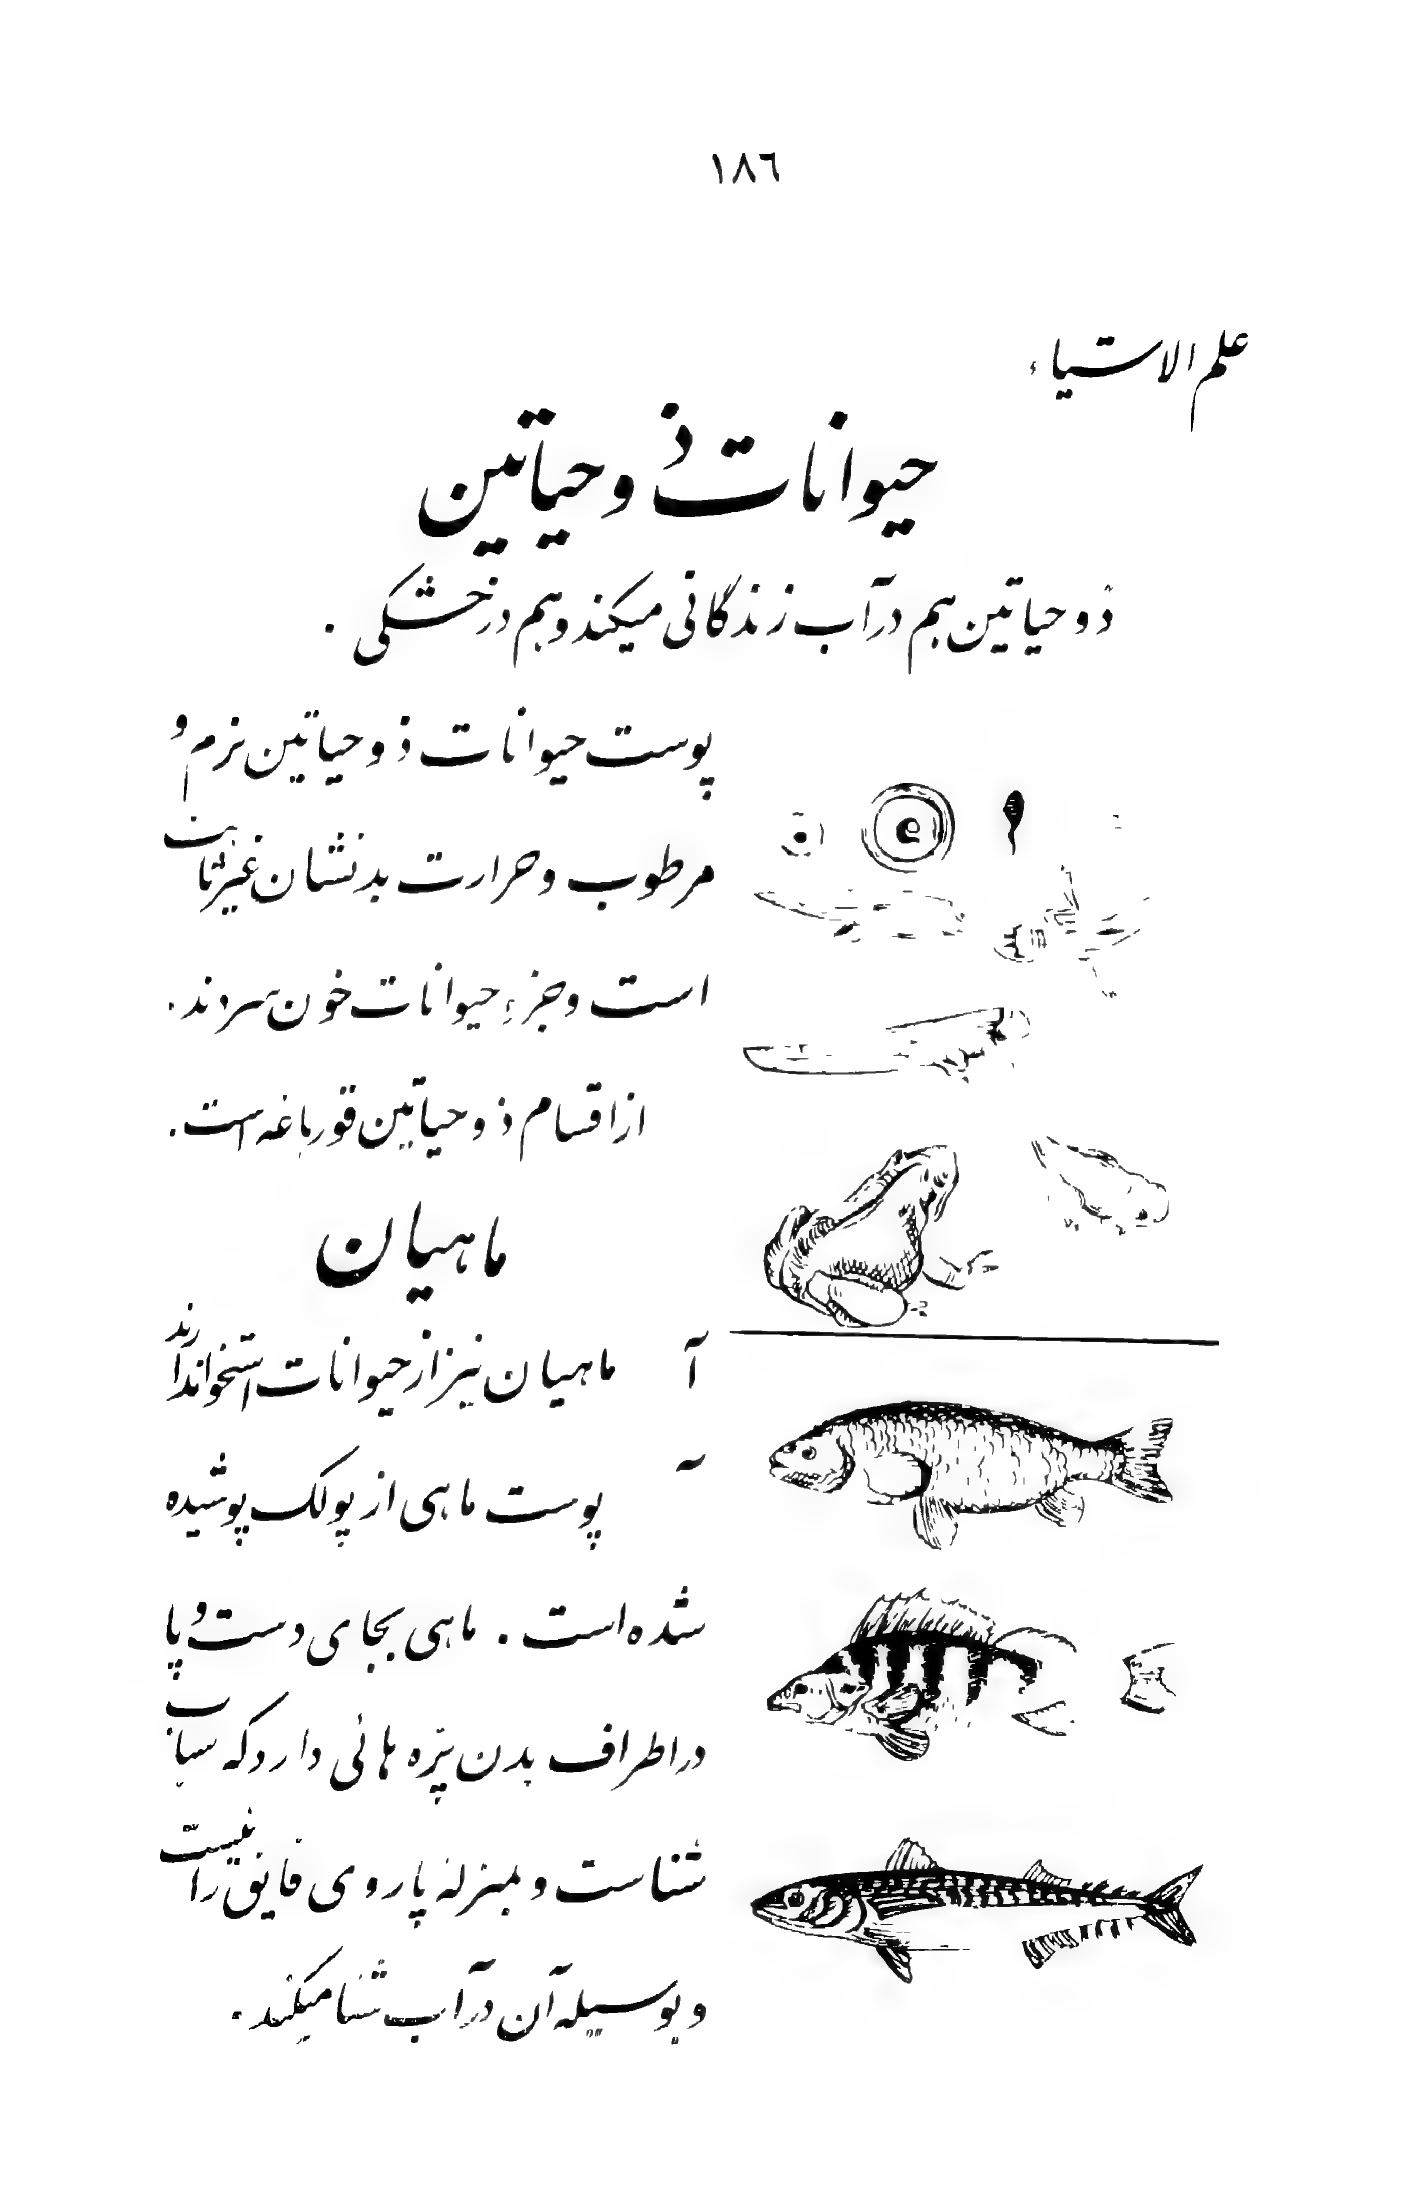 ١٨٦
علم الاشیاء
حیوانات ذو حیاتین
ذو حیاتین هم در آب زندگانی میکند و هم در خشکی .
پوست حیوانات ذو حیاتین نرم و
مرطوب و حرارت بدنشان غیر ثابت
است و جزء حیوانات خون سردند .
از اقسام ذو حیاتین قورباغه است .
ماهیان
آ ماهیان نیز از حیوانات استخواندارند
پوست ماهی از پولک پوشیده
شده است . ماهی بجای دست و پا
در اطراف بدن پرّه هائی دارد که سبا
شناست و بمنزلهٔ پاروی قایق رانیست
و بوسیله آن در آب شنا میکند .